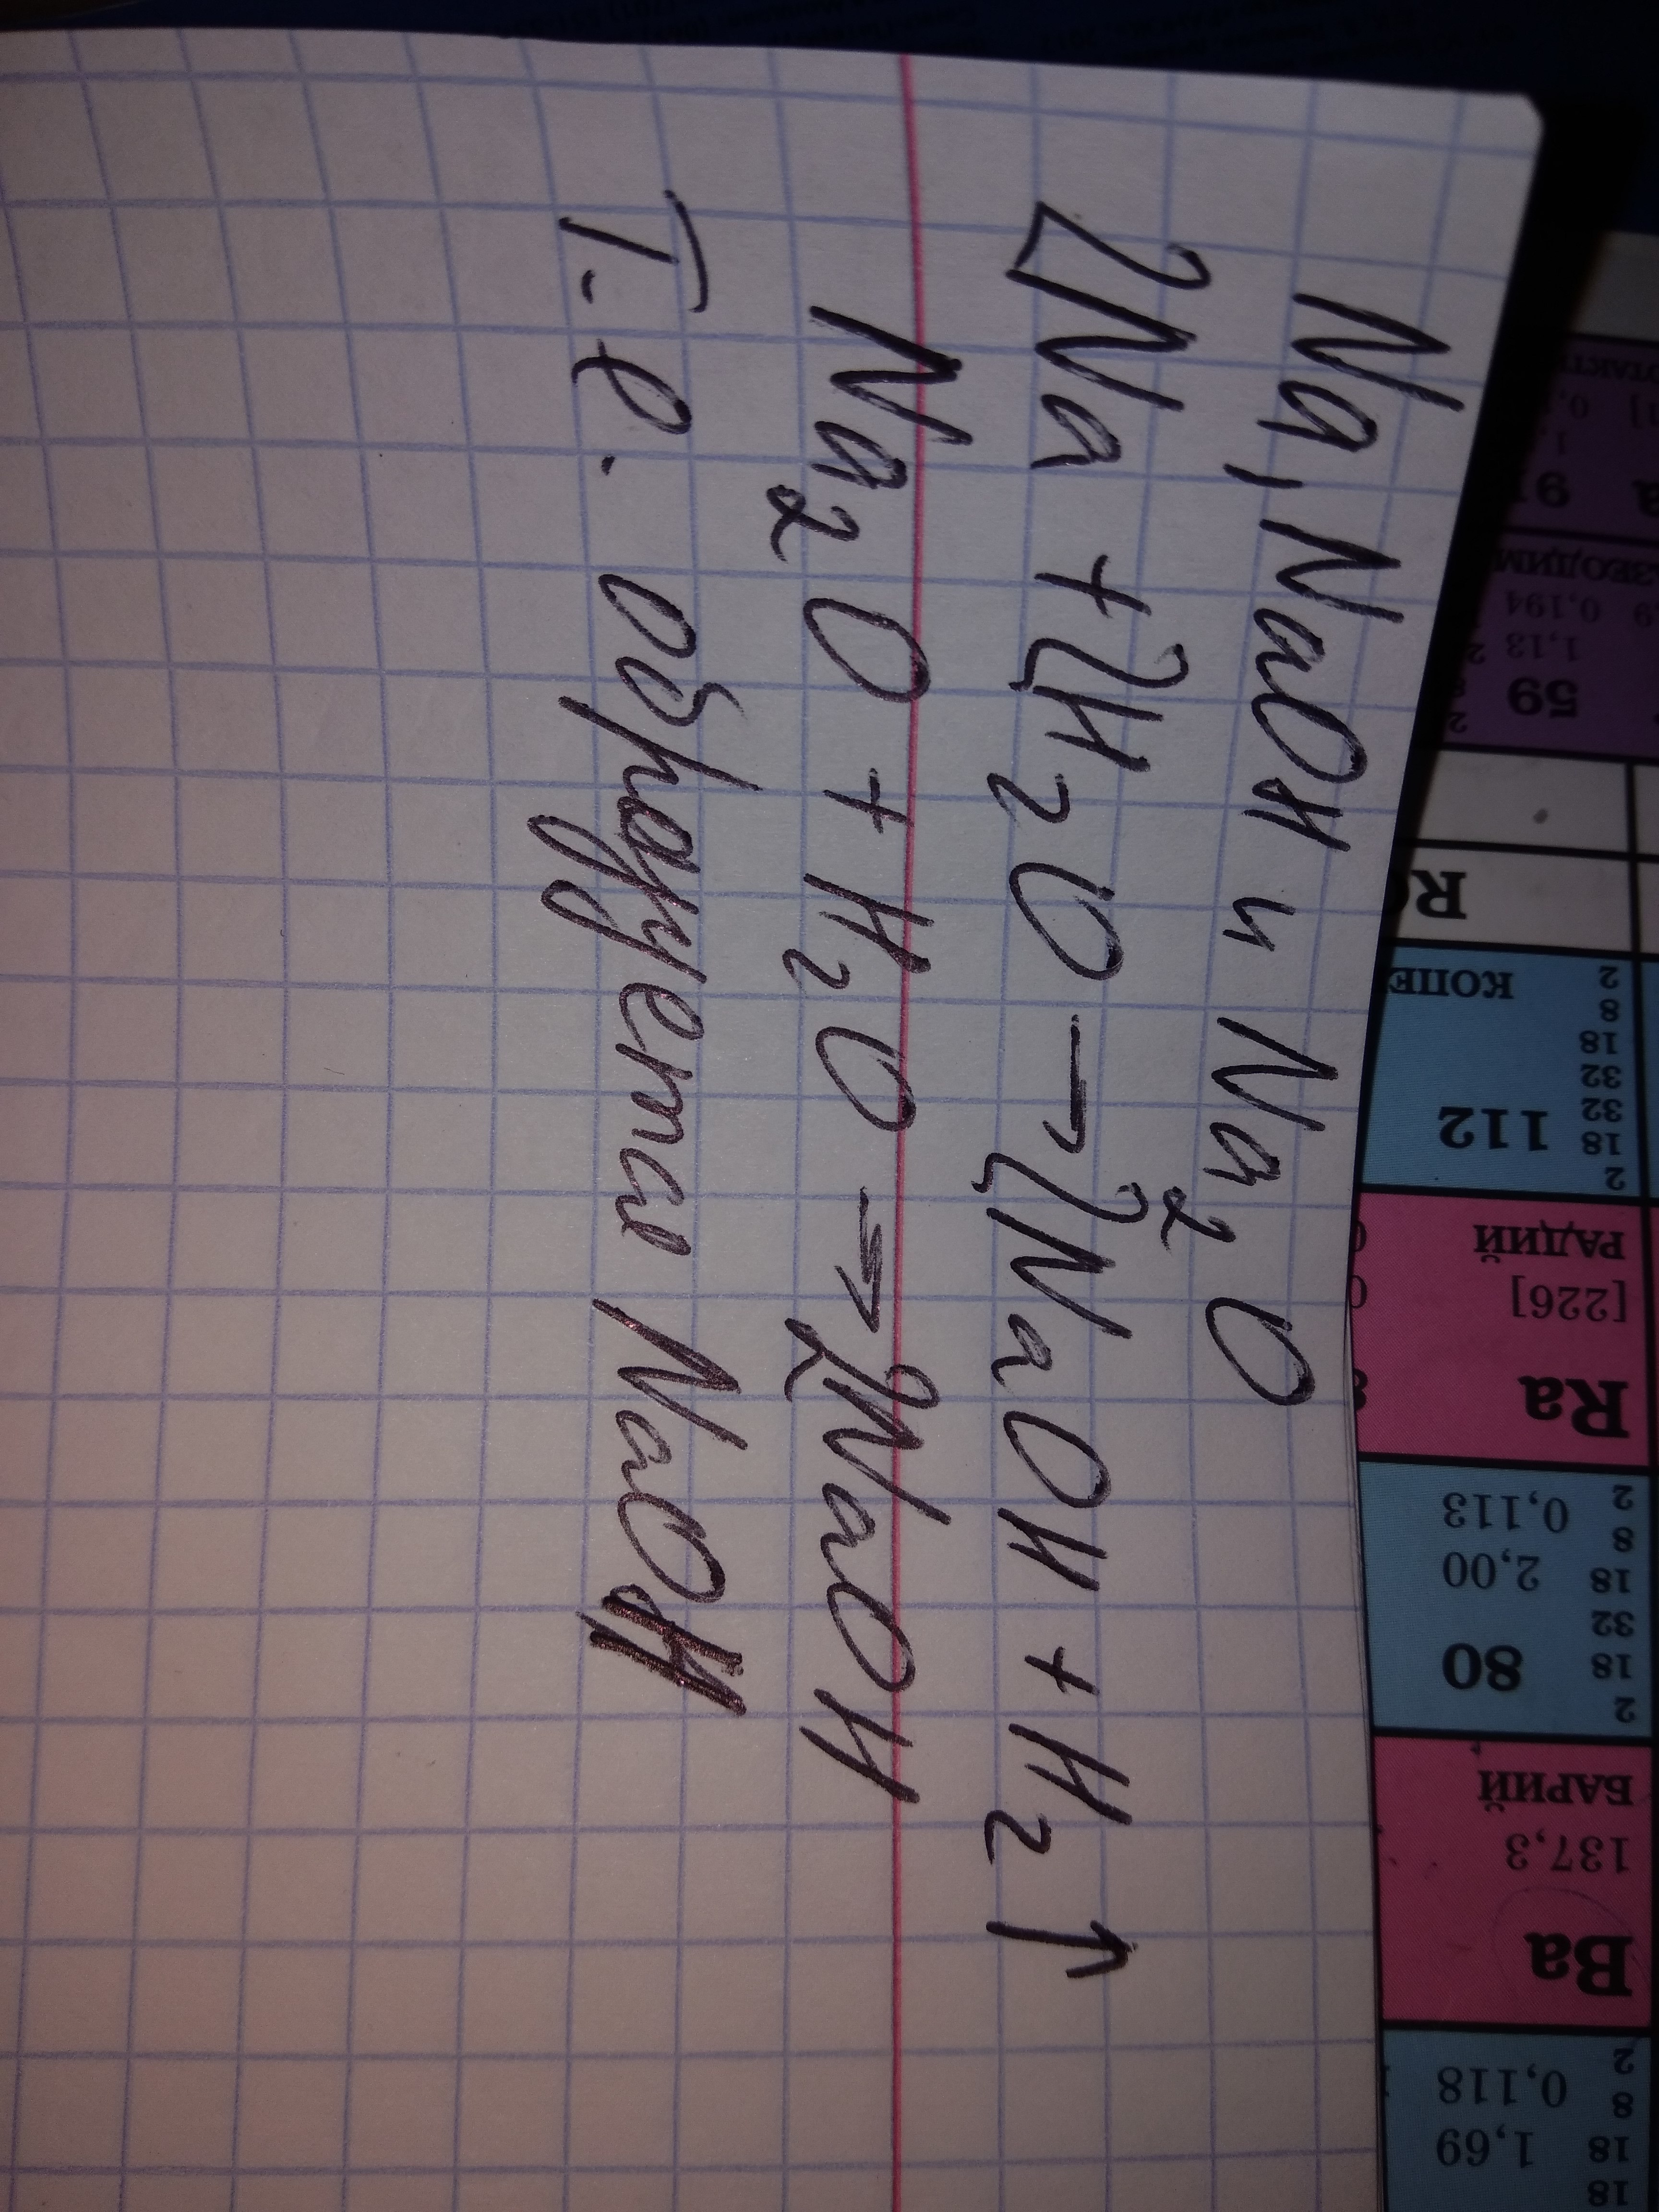 Na, NaOH и Na₂O
2Na + 2H₂O → 2NaOH + H₂↑
Na₂O + H₂O → 2NaOH
Т.е. образуется NaOH
59
1,13
0,194
112
КОПЕ
2
8
18
32
32
18
2
РАДИЙ
[226]
Ra
80
2,00
0,113
2
8
18
32
18
2
БАРИЙ
137,3
Ba
1,69
0,118
2
8
18
18